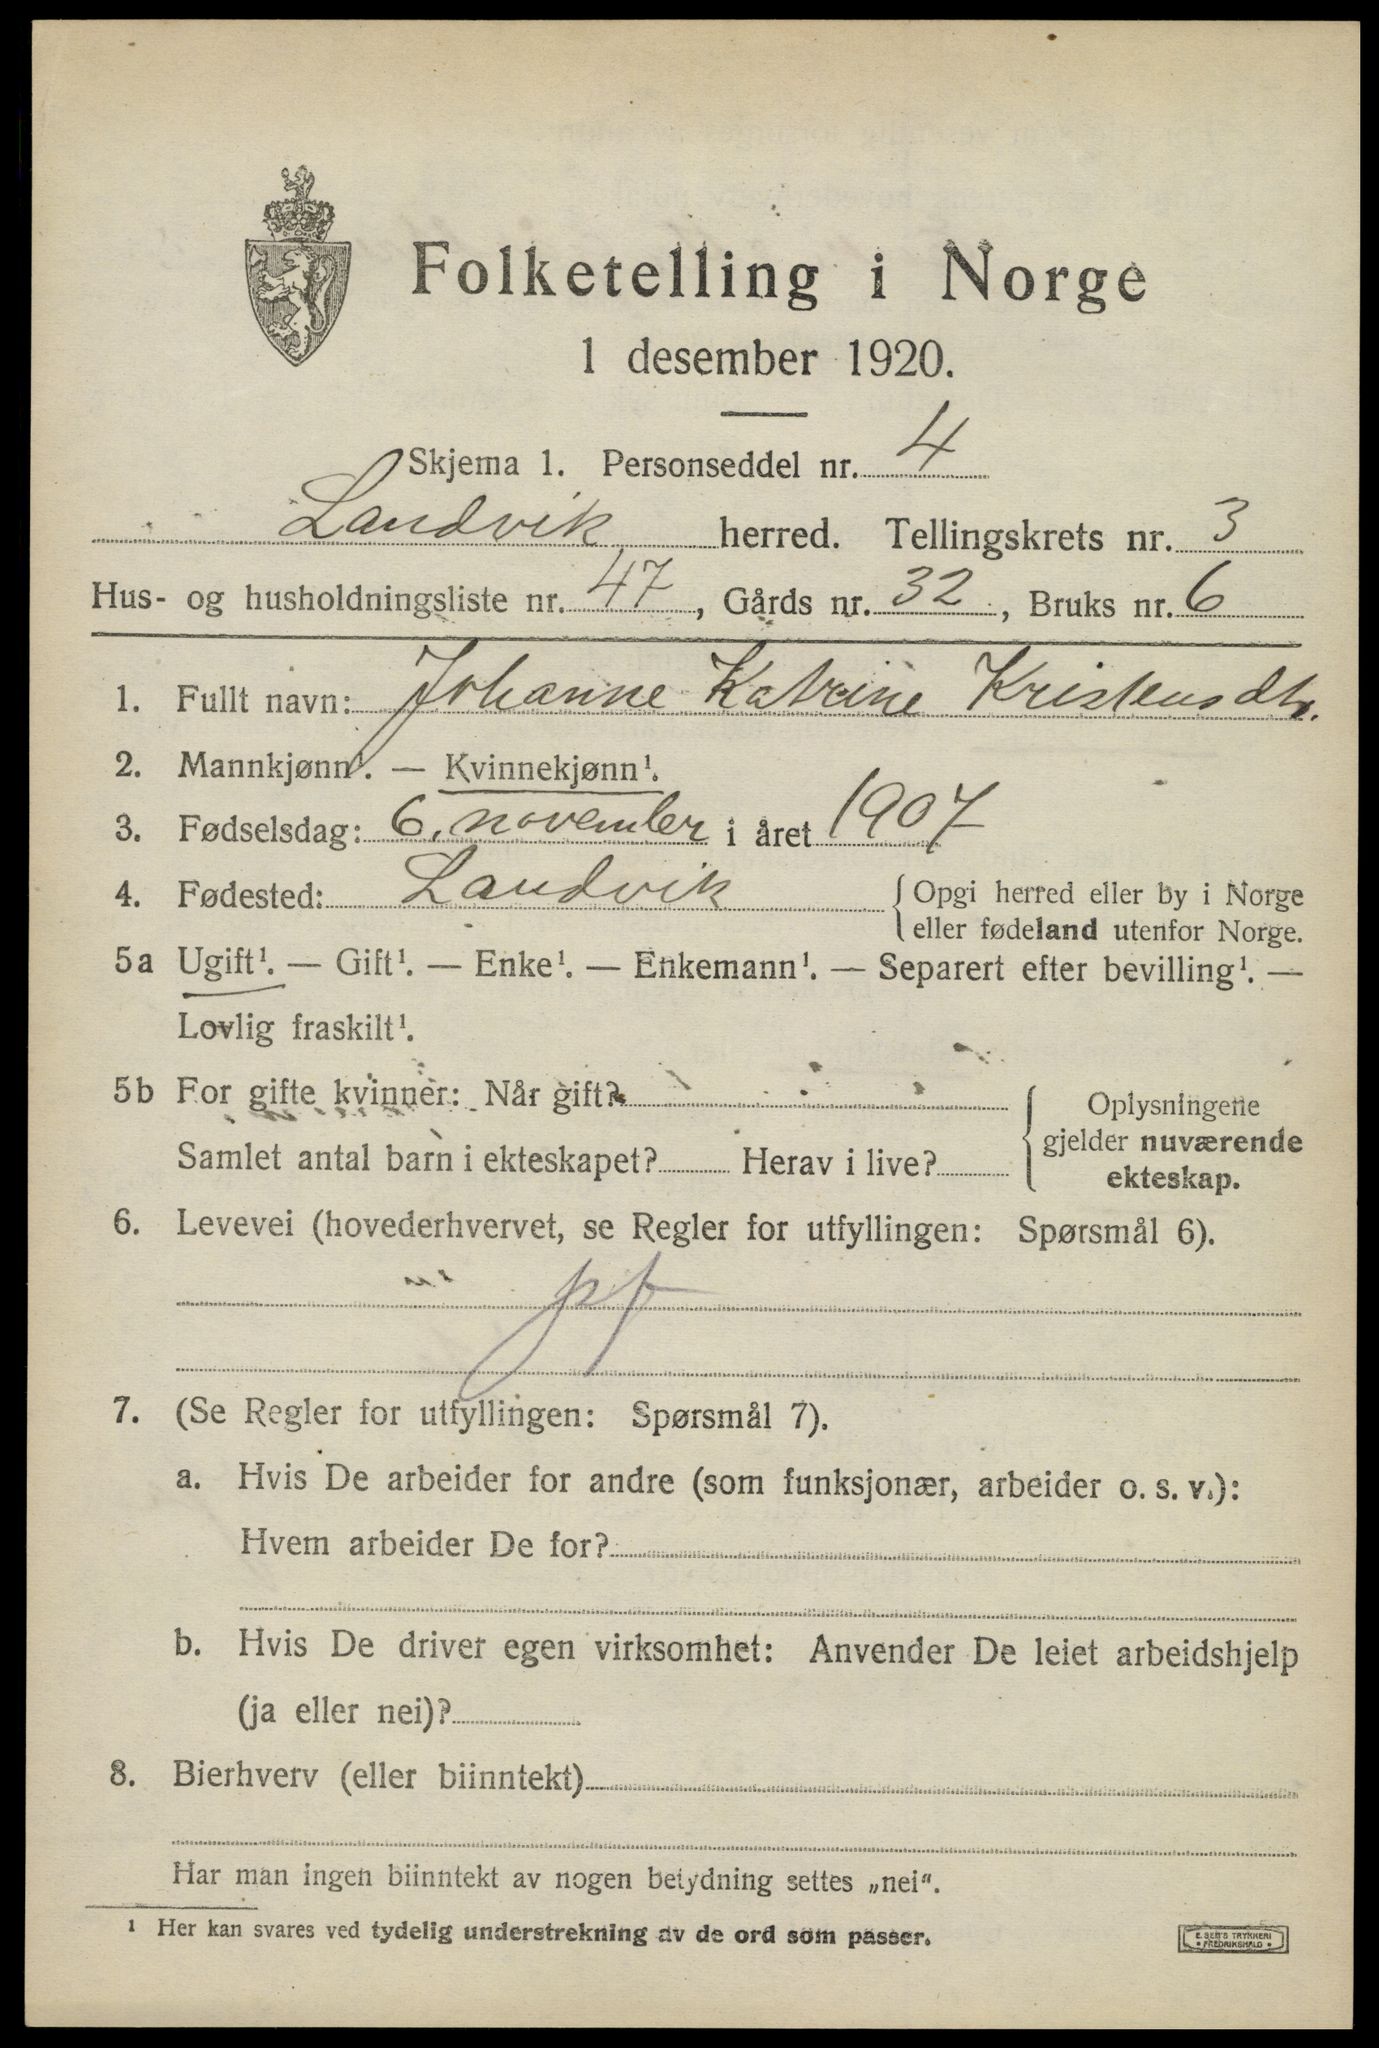 Folketelling i Norge
1 desember 1920.
Skjema 1. Personseddel nr. 4
Landvik herred. Tellingskrets nr. 3
Hus- og husholdningsliste nr. 47, Gårds nr. 32, Bruks nr. 6
1. Fullt navn: Johanne Katrine Kristensdtr.
2. Mannkjønn¹. — Kvinnekjønn¹.
3. Fødselsdag: 6. november i året 1907
4. Fødested: Landvik {Opgi herred eller by i Norge
eller fødeland utenfor Norge.
5a Ugift¹. — Gift¹. — Enke¹. — Enkemann¹. — Separert efter bevilling¹. —
Lovlig fraskilt¹.
5b For gifte kvinner: Når gift?
Samlet antal barn i ekteskapet? Herav i live?
Oplysningene
gjelder nuværende
ekteskap.
6. Levevei (hovederhvervet, se Regler for utfyllingen: Spørsmål 6).
pf
7. (Se Regler for utfyllingen: Spørsmål 7).
a. Hvis De arbeider for andre (som funksjonær, arbeider o. s. v.):
Hvem arbeider De for?
b. Hvis De driver egen virksomhet: Anvender De leiet arbeidshjelp
(ja eller nei)?
8. Bierhverv (eller biinntekt)
Har man ingen biinntekt av nogen betydning settes „nei“.
¹ Her kan svares ved tydelig understrekning av de ord som passer.
E. SEM'S TRYKKERI
• FREDRIKSHALD •